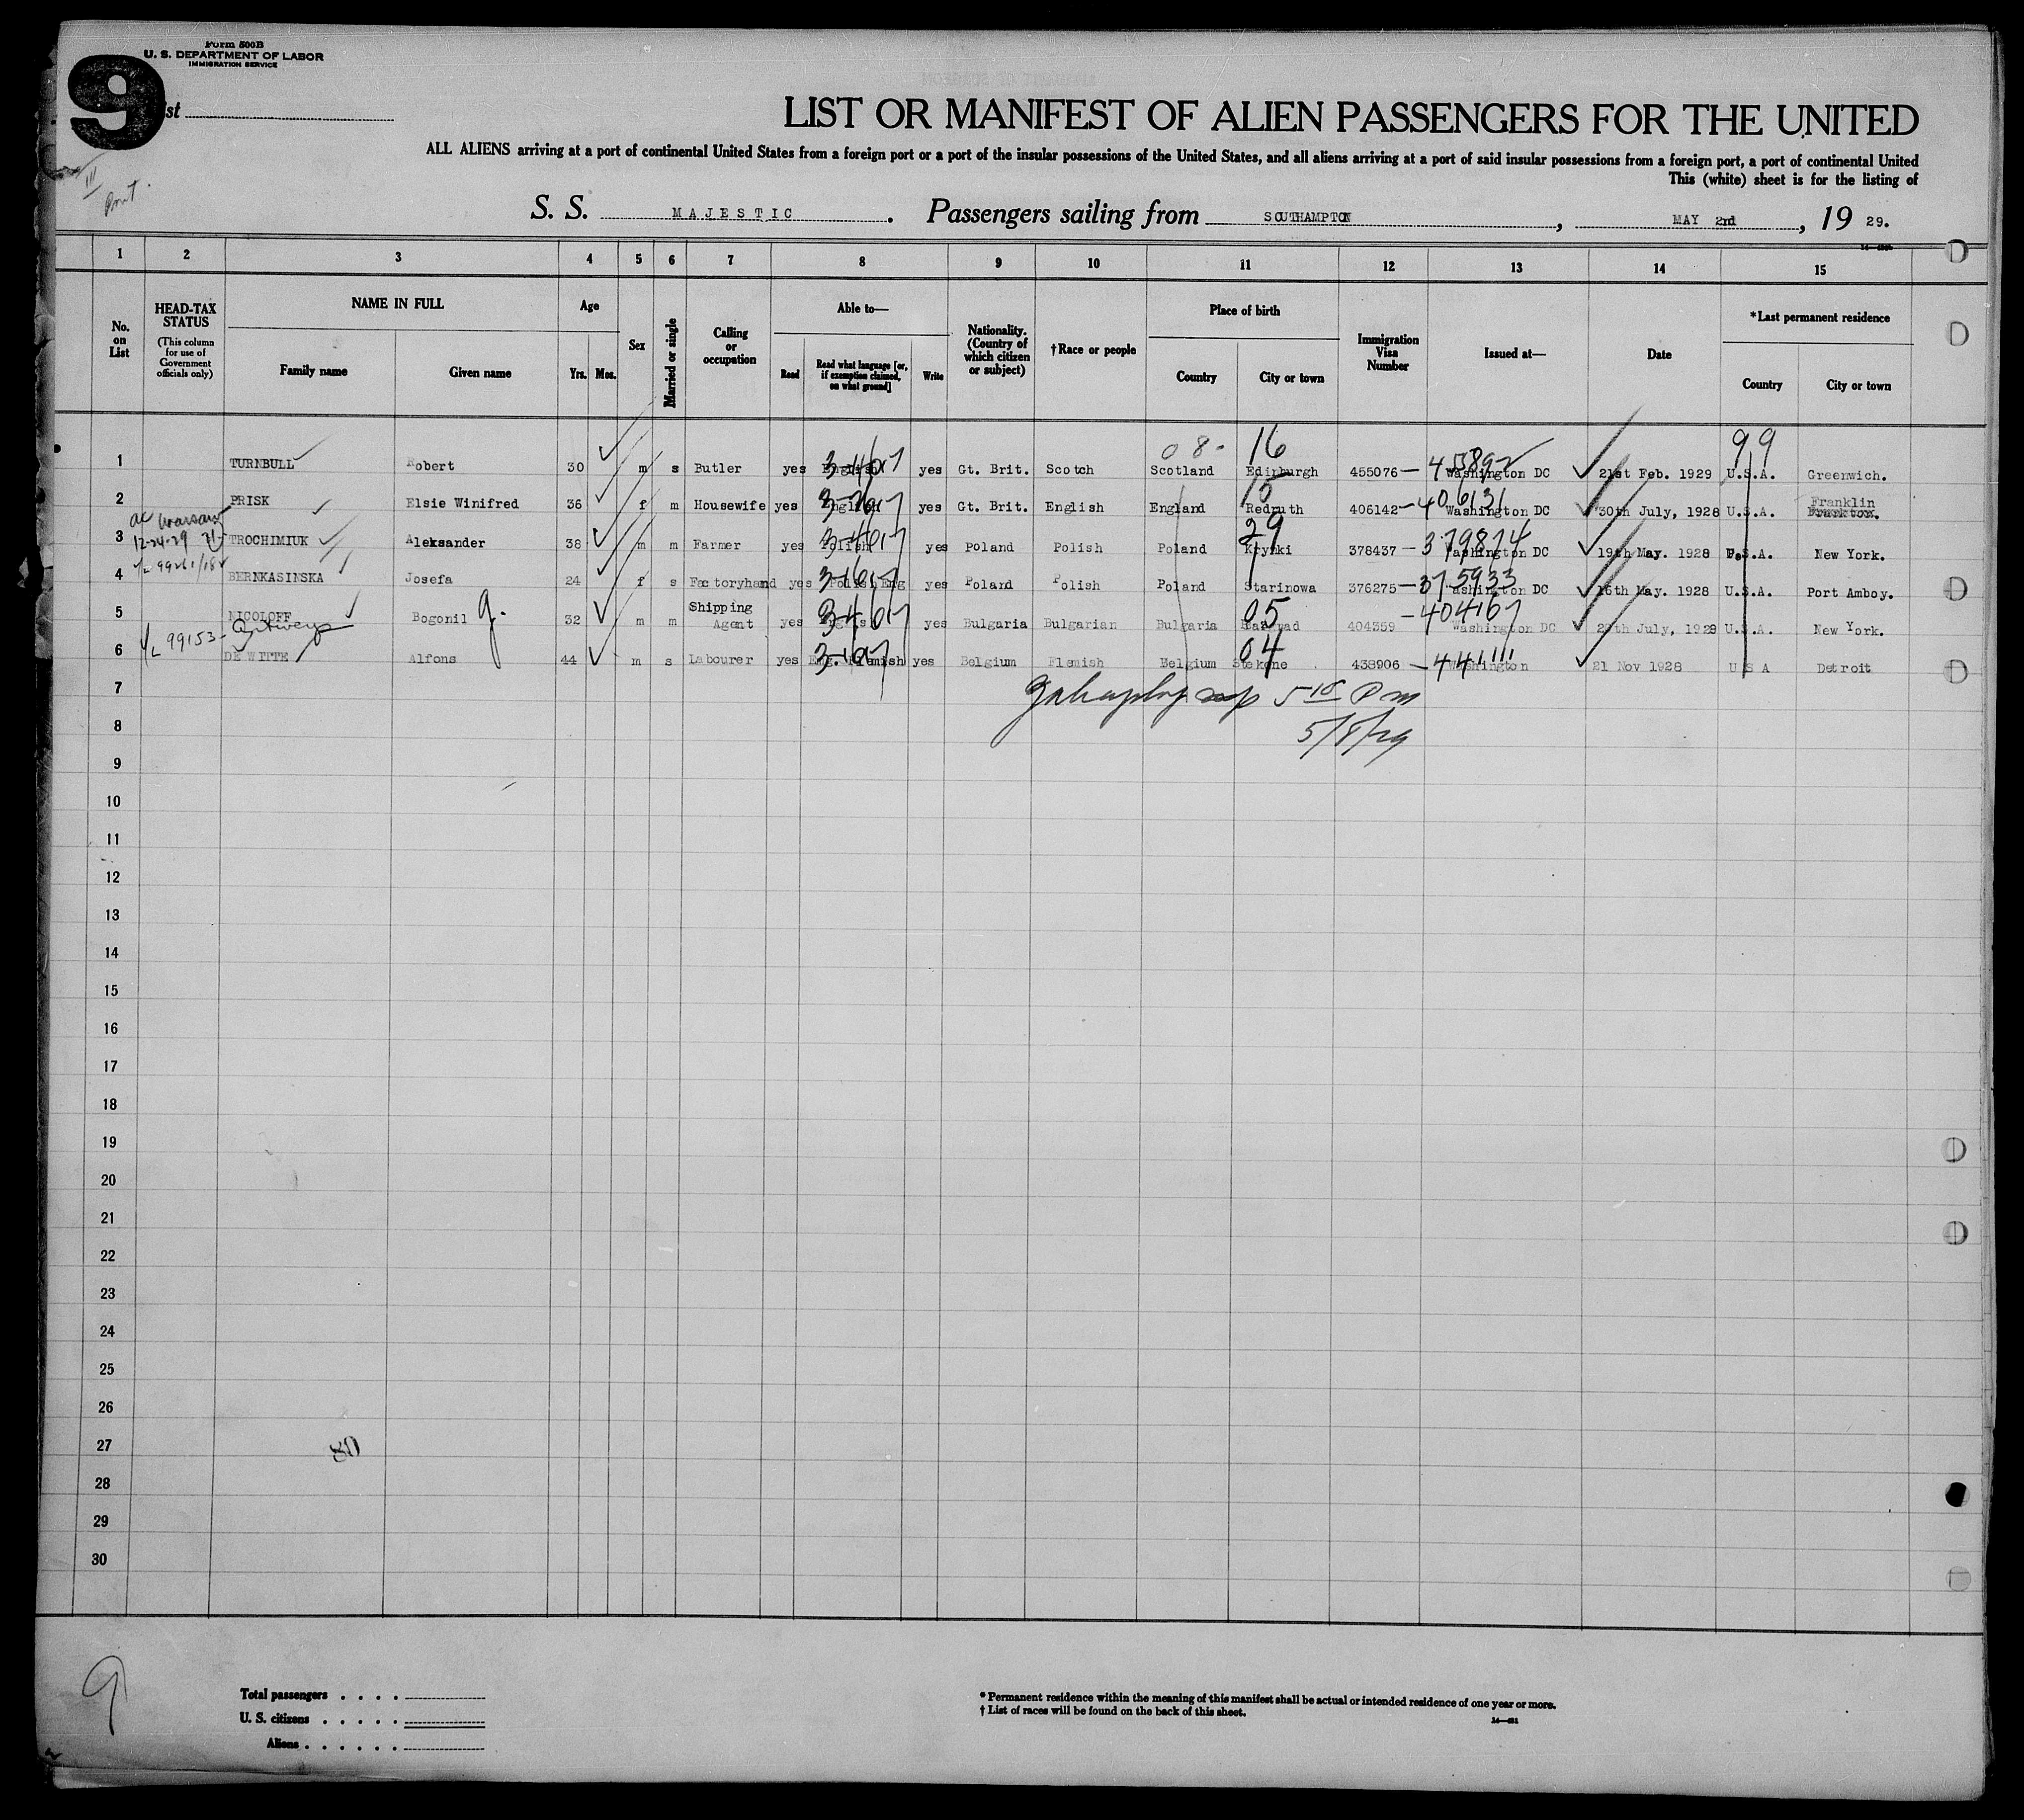 Form 500B
U. S. DEPARTMENT OF LABOR
IMMIGRATION SERVICE
9
ist
LIST OR MANIFEST OF ALIEN PASSENGERS FOR THE UNITED
ALL ALIENS arriving at a port of continental United States from a foreign port or a port of the insular possessions of the United States, and all aliens arriving at a port of said insular possessions from a foreign port, a port of continental United
This (white) sheet is for the listing of
S. S. MAJESTIC. Passengers sailing from SOUTHAMPTON, MAY 2nd, 19 29.
1 2 3 4 5 6 7 8 9 10 11 12 13 14 15
No. on List
HEAD-TAX STATUS
(This column for use of Government officials only)
NAME IN FULL
Family name Given name
Age
Yrs. Mos.
Sex
Married or single
Calling or occupation
Able to—
Read Read what language [or, if exemption claimed, on what ground] Write
Nationality. (Country of which citizen or subject)
†Race or people
Place of birth
Country City or town
Immigration Visa Number
Issued at—
Date
*Last permanent residence
Country City or town
08- 16 99
1 TURNBULL Robert 30 m s Butler yes English yes Gt. Brit. Scotch Scotland Edinburgh 455076 — 45892 Washington DC 21st Feb. 1929 U.S.A. Greenwich.
15 Franklin
2 PRISK Elsie Winifred 36 f m Housewife yes English yes Gt. Brit. English England Redruth 406142 — 406131 Washington DC 30th July, 1928 U.S.A.
ac Warsaw
12-24-29
29
3 TROCHIMIUK Aleksander 38 m m Farmer yes Polish yes Poland Polish Poland Krynki 378437 — 379874 Washington DC 19th May. 1928 U.S.A. New York.
4 BERNKASINSKA Josefa 24 f s Factoryhand yes Polish Eng yes Poland Polish Poland Starinowa 376275 — 375933 Washington DC 16th May. 1928 U.S.A. Port Amboy.
05
5 NICOLOFF Bogonil 32 m m Shipping Agent yes yes Bulgaria Bulgarian Bulgaria 404359 — 404167 Washington DC July, 1928 U.S.A. New York.
99153- Antwerp
04
6 DE WITTE Alfons 44 m s Labourer yes Eng. Flemish yes Belgium Flemish Belgium Stekene 438906 — 441111 Washington 21 Nov 1928 U S A Detroit
7
5 15 Pm
8
5/8/29
9
10
11
12
13
14
15
16
17
18
19
20
21
22
23
24
25
26
27
80
28
29
30
9
Total passengers . . . .
U. S. citizens . . . . .
Aliens . . . . . .
* Permanent residence within the meaning of this manifest shall be actual or intended residence of one year or more.
† List of races will be found on the back of this sheet.